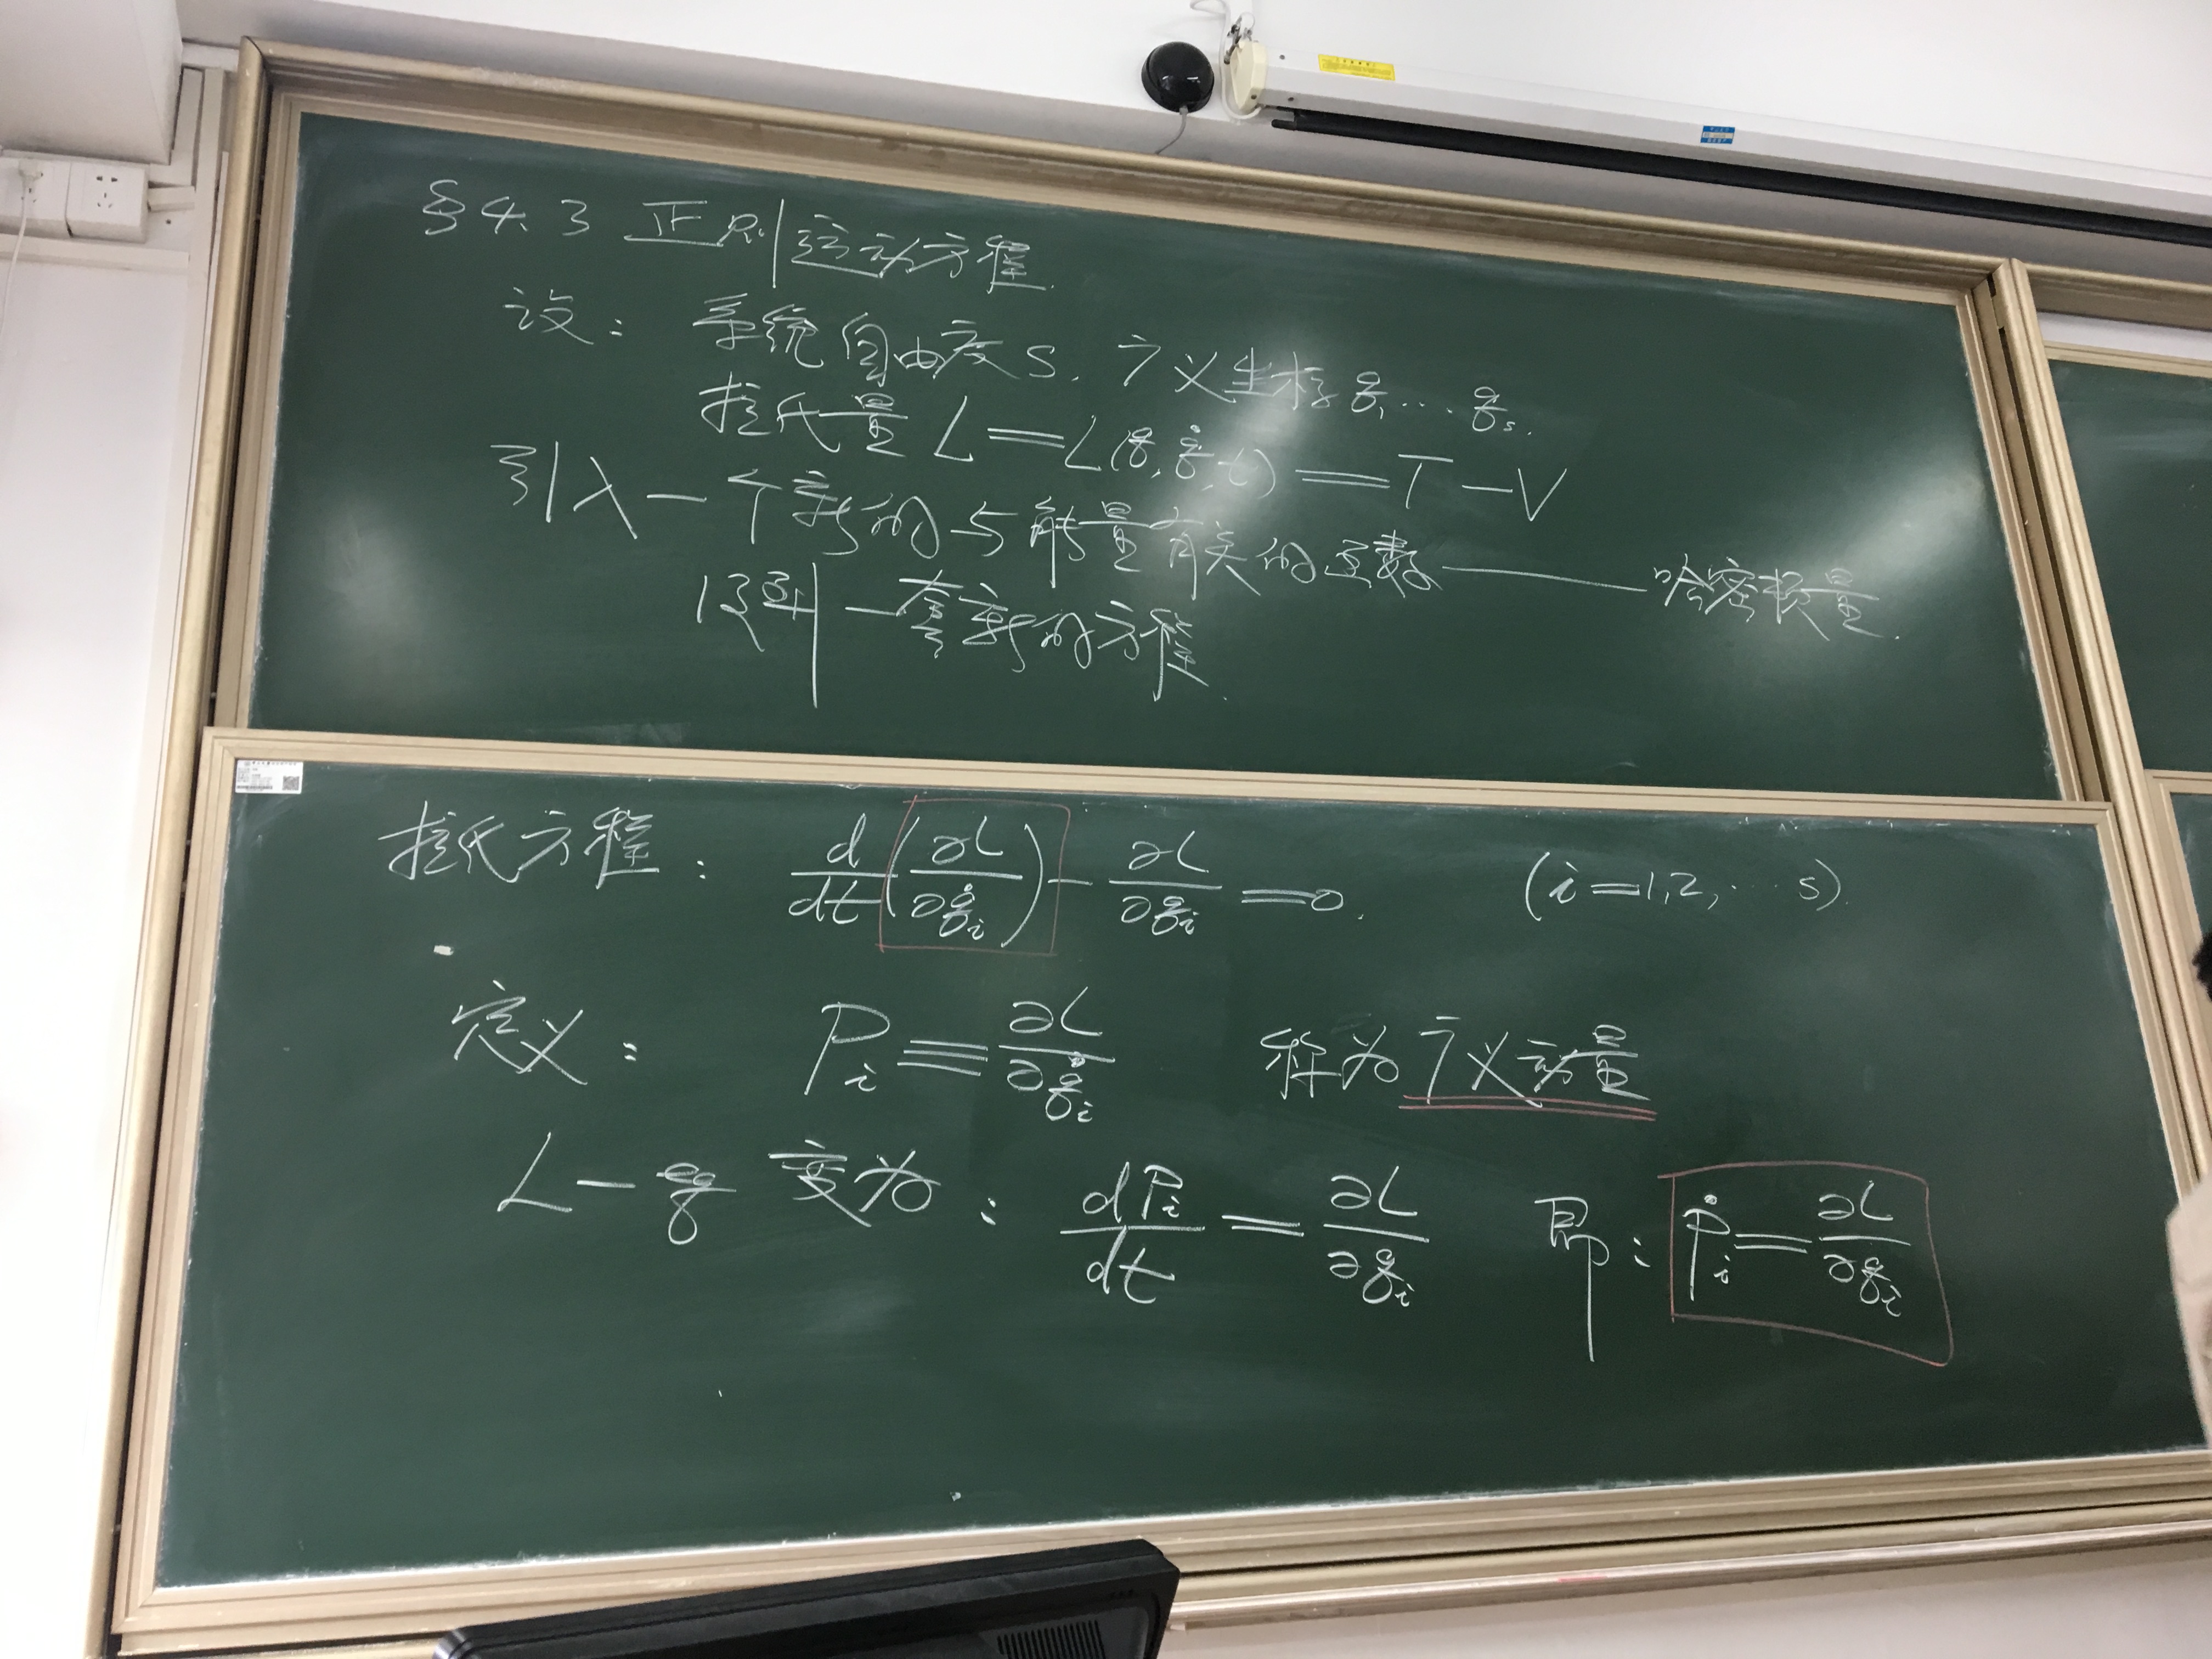 §4.3 正则运动方程.
设: 系统自由度S, 广义坐标q₁…qₛ.
拉氏量 L=L(q,q̇,t)=T-V
引入一个新的与能量有关的函数——哈密顿量.
得到一套新的方程.
拉氏方程: d/dt(∂L/∂q̇ᵢ)-∂L/∂qᵢ=0. (i=1,2,…s).
定义: Pᵢ≡∂L/∂q̇ᵢ 称为广义动量
L-g 变为: dPᵢ/dt=∂L/∂qᵢ 即: Ṗᵢ=∂L/∂qᵢ